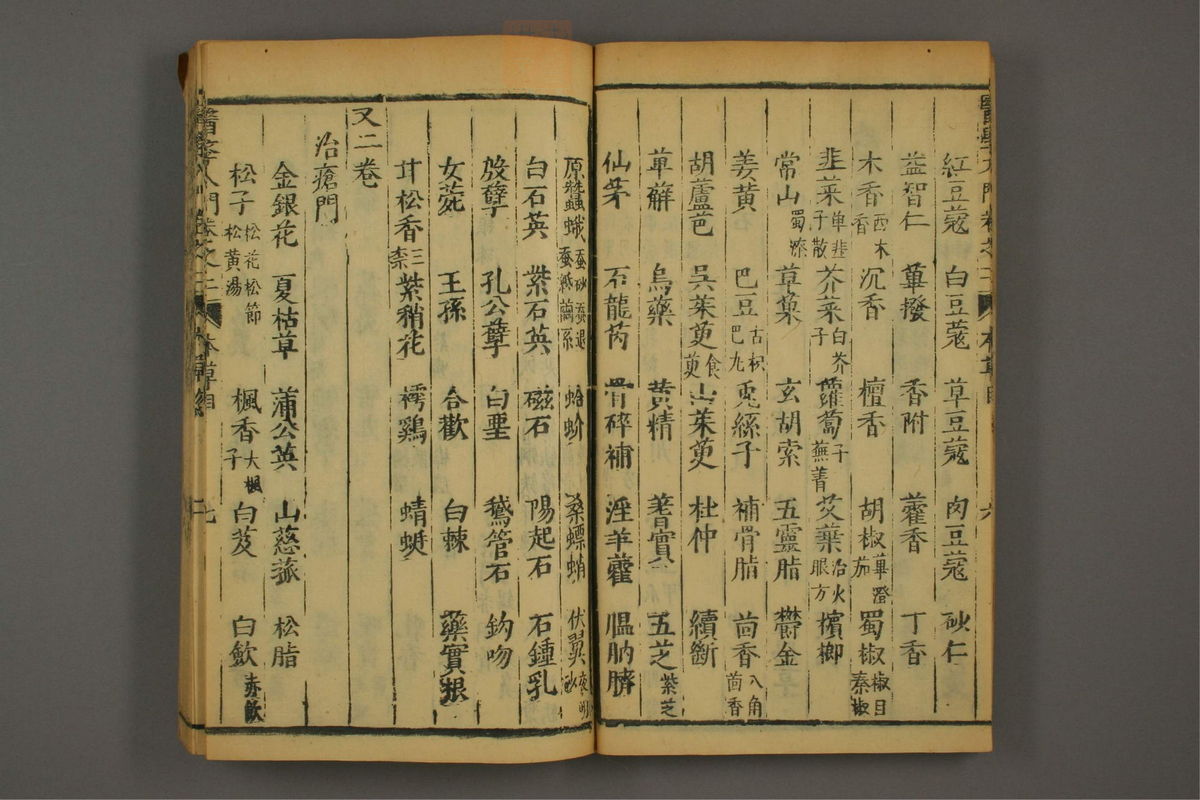 紅豆蔻 白豆蔻 草豆蔻 肉豆蔻 砂仁
益智仁 蓽撥 香附 藿香 丁香
木香 西木香 沉香 檀香 胡椒 蓽澄茄 蜀椒 椒目 秦椒
韭菜 子 單韭散 芥菜 白芥子 蘿蔔 子 蕪菁 艾葉 治火眼方 檳榔
常山 蜀漆 草菓 玄胡索 五靈脂 鬱金
姜黄 巴豆 古枳巴丸 兎絲子 補骨脂 茴香 八角茴香
胡蘆芭 吳茱萸 食萸 山茱萸 杜仲 續斷
萆薢 烏藥 黄精 蓍實 五芝 紫芝
仙茅 石龍芮 骨碎補 淫羊藿 膃肭臍
原蠶蛾 蚕砂 蚕退 蚕紙 繭系 蛤蚧 桑螵蛸 伏翼 夜明砂
白石英 紫石英 磁石 陽起石 石鍾乳
殷孽 孔公孽 白堊 鵝管石 鈎吻
女菀 王孫 合歡 白棘 藥實根
甘松香 三柰 紫稍花 樗鷄 蜻蜓
又二卷
治瘡門
金銀花 夏枯草 蒲公英 山慈菰 松脂
松子 松花 松節 松黄湯 楓香 大楓子 白芨 白歛 赤歛
本草目